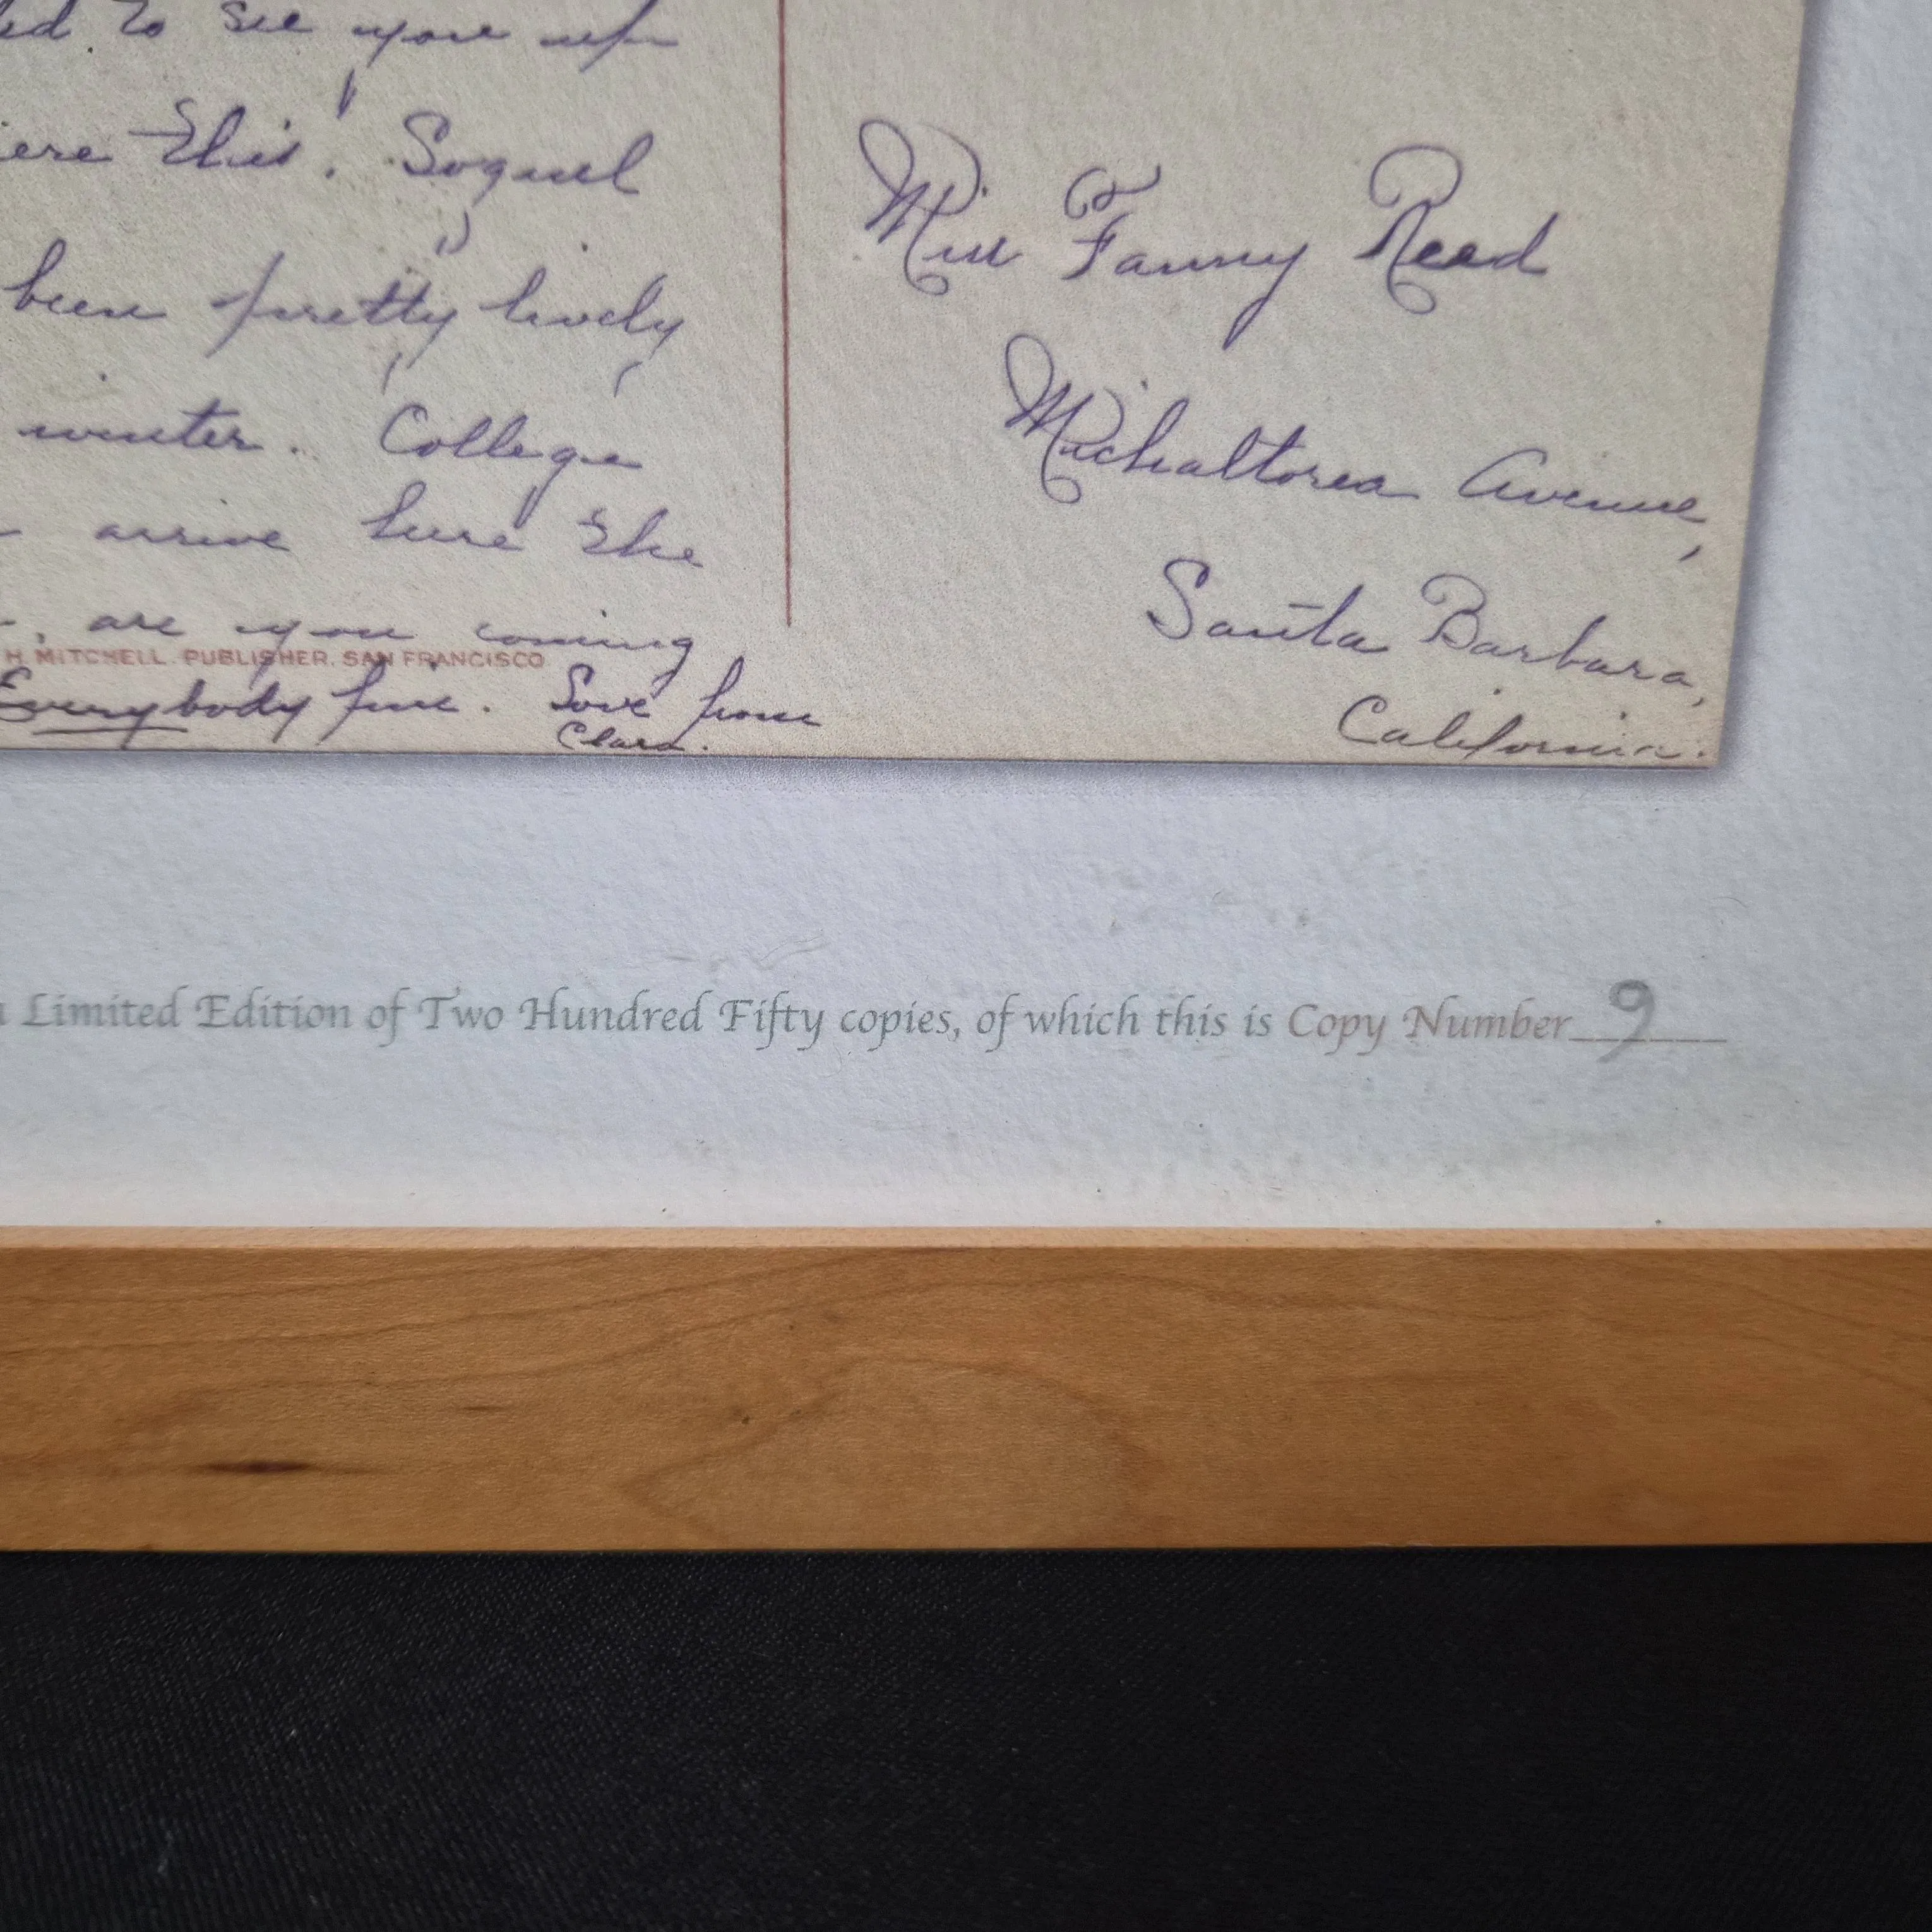 ed to see you up
ere this! Soquel
been pretty lively
winter. College
arrive here the
, are you coming
H. MITCHELL, PUBLISHER, SAN FRANCISCO
Everybody fine. Love from
Clara.
Miss Fanny Reed
Michaltorea Avenue,
Santa Barbara,
California.
Limited Edition of Two Hundred Fifty copies, of which this is Copy Number 9